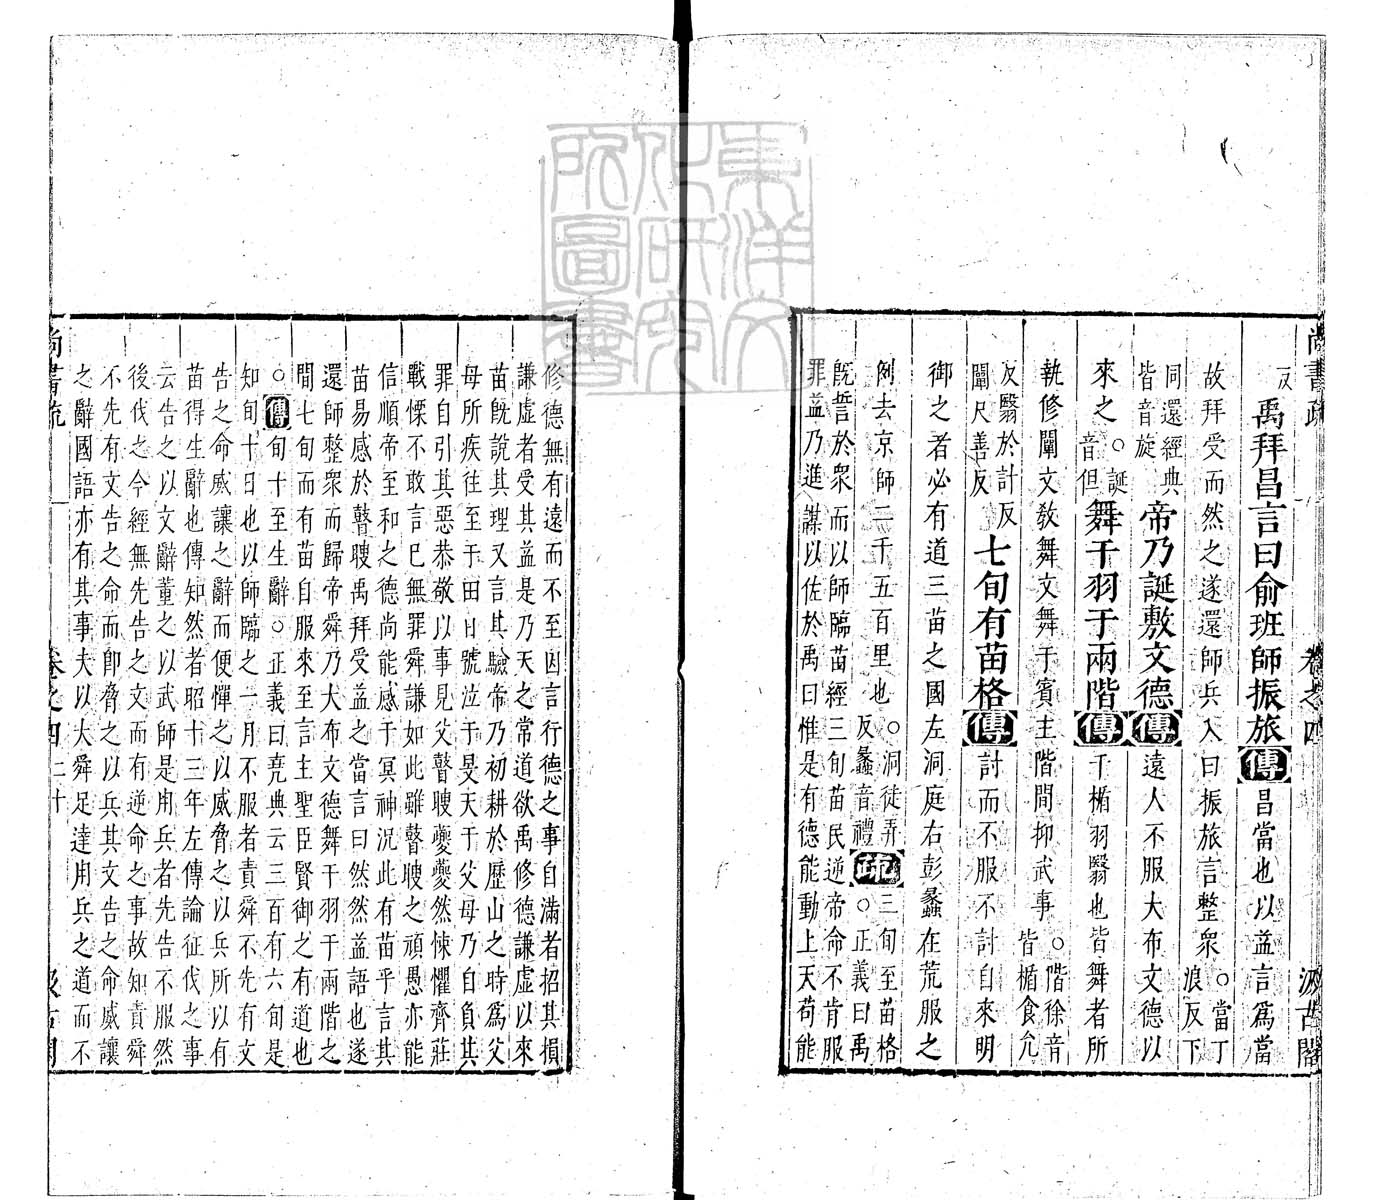 尚書疏 卷之四 汲古閣
反 禹拜昌言曰俞班師振旅傳昌當也以益言爲當
故拜受而然之遂還師兵入曰振旅言整衆 ○當丁
浪反下
同還經典
皆音旋 帝乃誕敷文德傳遠人不服大布文德以
來之 ○誕
音但 舞干羽于兩階傳干楯羽翳也皆舞者所
執修闡文敎舞文舞于賓主階間抑武事 ○階徐音
皆楯食允
反翳於計反
闡尺善反 七旬有苗格傳討而不服不討自來明
御之者必有道三苗之國左洞庭右彭蠡在荒服之
例去京師二千五百里也 ○洞徒弄
反蠡音禮 疏三旬至苗格
○正義曰禹
旣誓於衆而以師臨苗經三旬苗民逆帝命不肯服
罪益乃進謀以佐於禹曰惟是有德能動上天苟能
修德無有遠而不至因言行德之事自滿者招其損
謙虛者受其益是乃天之常道欲禹修德謙虛以來
苗旣說其理又言其驗帝乃初耕於歷山之時爲父
母所疾往至于田日號泣于旻天于父母乃自負其
罪自引其惡恭敬以事見父瞽瞍夔夔然悚懼齊莊
戰慄不敢言已無罪舜謙如此雖瞽瞍之頑愚亦能
信順帝至和之德尚能感于冥神況此有苗乎言其
苗易感於瞽瞍禹拜受益之當言曰然然益語也遂
還師整衆而歸帝舜乃大布文德舞干羽于兩階之
間七旬而有苗自服來至言主聖臣賢御之有道也
○傳旬十至生辭○正義曰堯典云三百有六旬是
知旬十日也以師臨之一月不服者責舜不先有文
告之命威讓之辭而便憚之以威脅之以兵所以有
苗得生辭也傳知然者昭十三年左傳論征伐之事
云告之以文辭董之以武師是用兵者先告不服然
後伐之今經無先告之文而有逆命之事故知責舜
不先有文告之命而卽脅之以兵其文告之命威讓
之辭國語亦有其事夫以大舜足達用兵之道而不
尚書疏 卷之四 二十 汲古閣
東洋文化研究所圖書